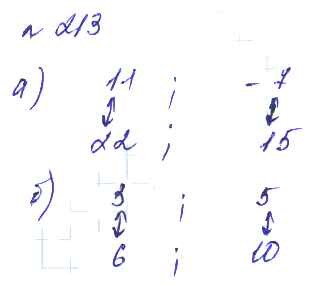 n 213
а) 11 ; -7
↕ ↕
22 ; 15
б) 3 ; 5
↕ ↕
6 ; 10